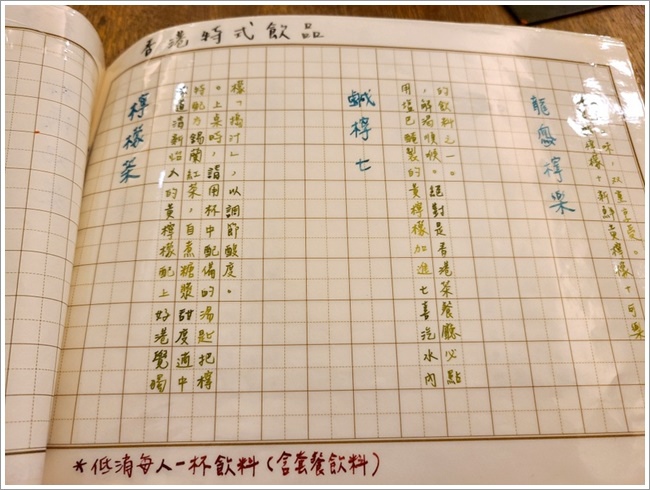 香港特式飲品
檸檬茶
道清新怡人的黃檸檬配上好港覺喝
特配方錫蘭紅茶，自煮糖漿甜度適中
。上桌時，請用杯中配備的湯匙把檸
檬「搗汁」，以調節酸度。
鹹檸七
用鹽巴醃製的黃檸檬加進七喜汽水內
，解渴爽喉。絕對是香港茶餐廳必點
的飲料之一。
龍鳳檸樂
檸檬+新鮮黃檸檬+可樂
味，双重享受。
*低消每人一杯飲料(含套餐飲料)